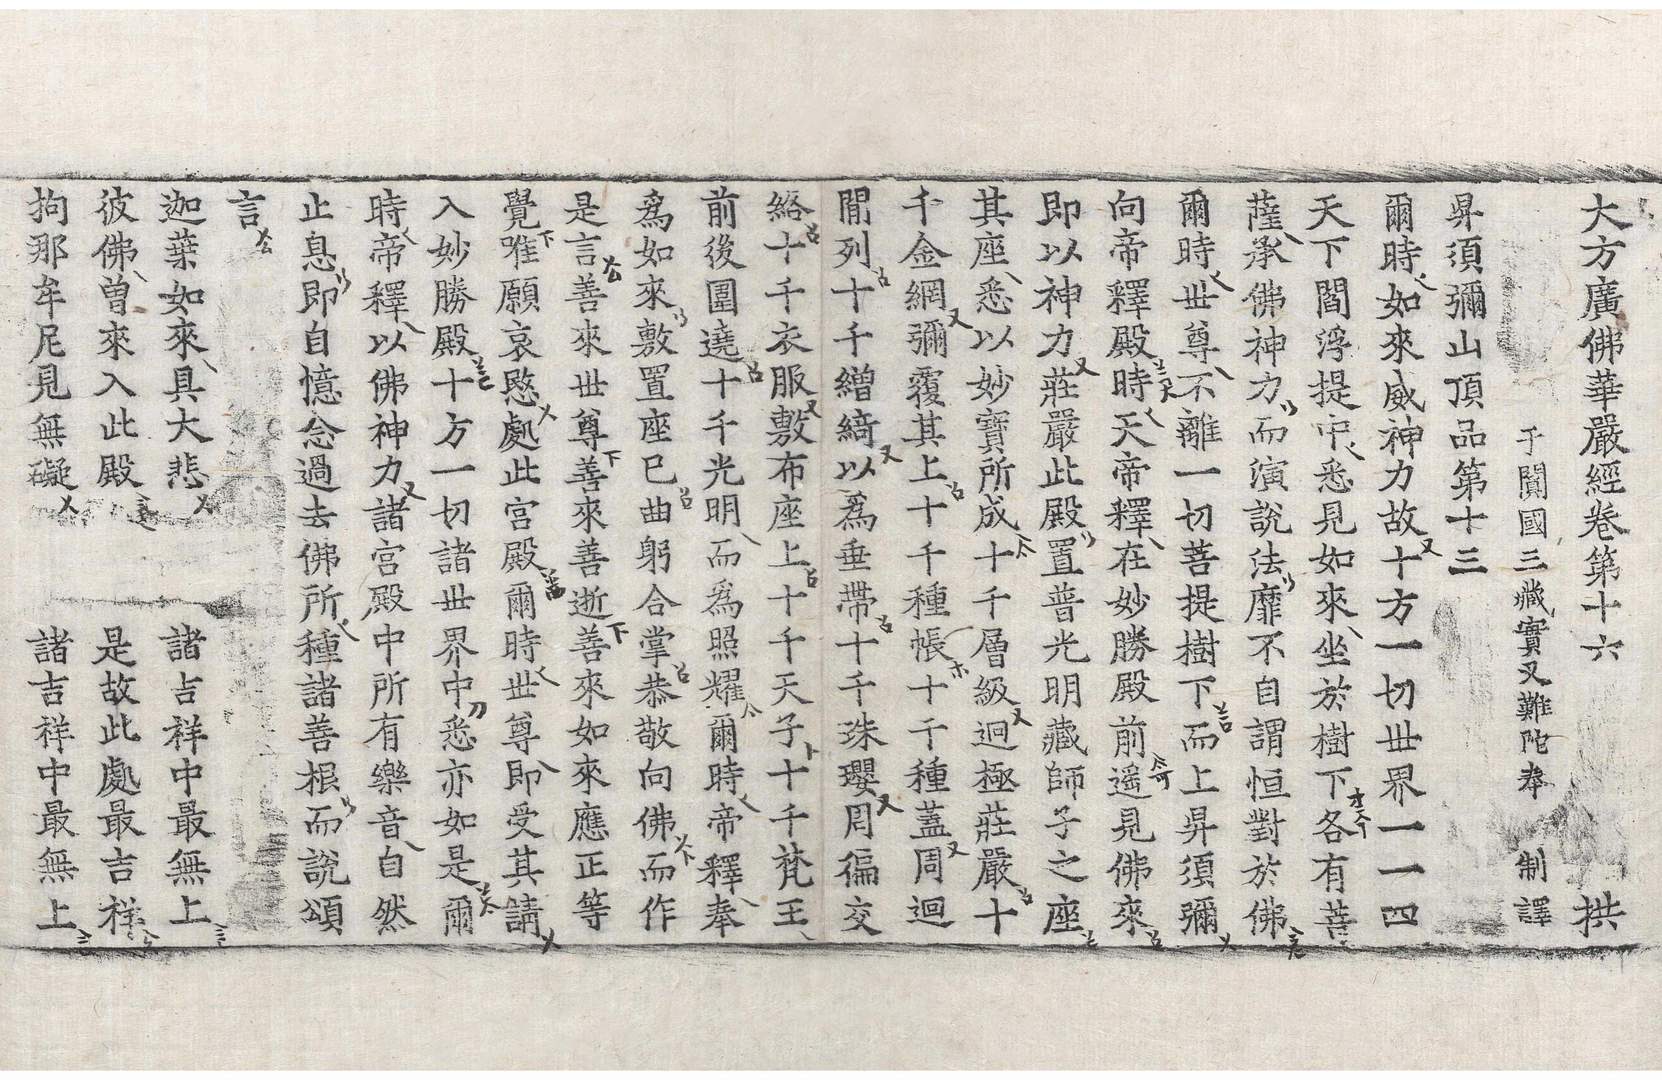 大方廣佛華嚴經卷第十六 拱
于闐國三藏實叉難陀奉 制譯
昇須彌山頂品第十三
爾時如來威神力故十方一切世界一一四
天下閻浮提中悉見如來坐於樹下各有菩
薩承佛神力而演說法靡不自謂恒對於佛
爾時世尊不離一切菩提樹下而上昇須彌
向帝釋殿時天帝釋在妙勝殿前遥見佛來
即以神力莊嚴此殿置普光明藏師子之座
其座悉以妙寶所成十千層級迥極莊嚴十
千金網彌覆其上十千種帳十千種蓋周迴
閒列十千繒綺以爲垂帶十千珠瓔周徧交
絡十千衣服敷布座上十千天子十千梵王
前後圍遶十千光明而爲照耀爾時帝釋奉
爲如來敷置座已曲躬合掌恭敬向佛而作
是言善來世尊善來善逝善來如來應正等
覺唯願哀愍處此宮殿爾時世尊即受其請
入妙勝殿十方一切諸世界中悉亦如是爾
時帝釋以佛神力諸宮殿中所有樂音自然
止息即自憶念過去佛所種諸善根而說頌
言
迦葉如來具大悲 諸吉祥中最無上
彼佛曾來入此殿 是故此處最吉祥
拘那牟尼見無礙 諸吉祥中最無上